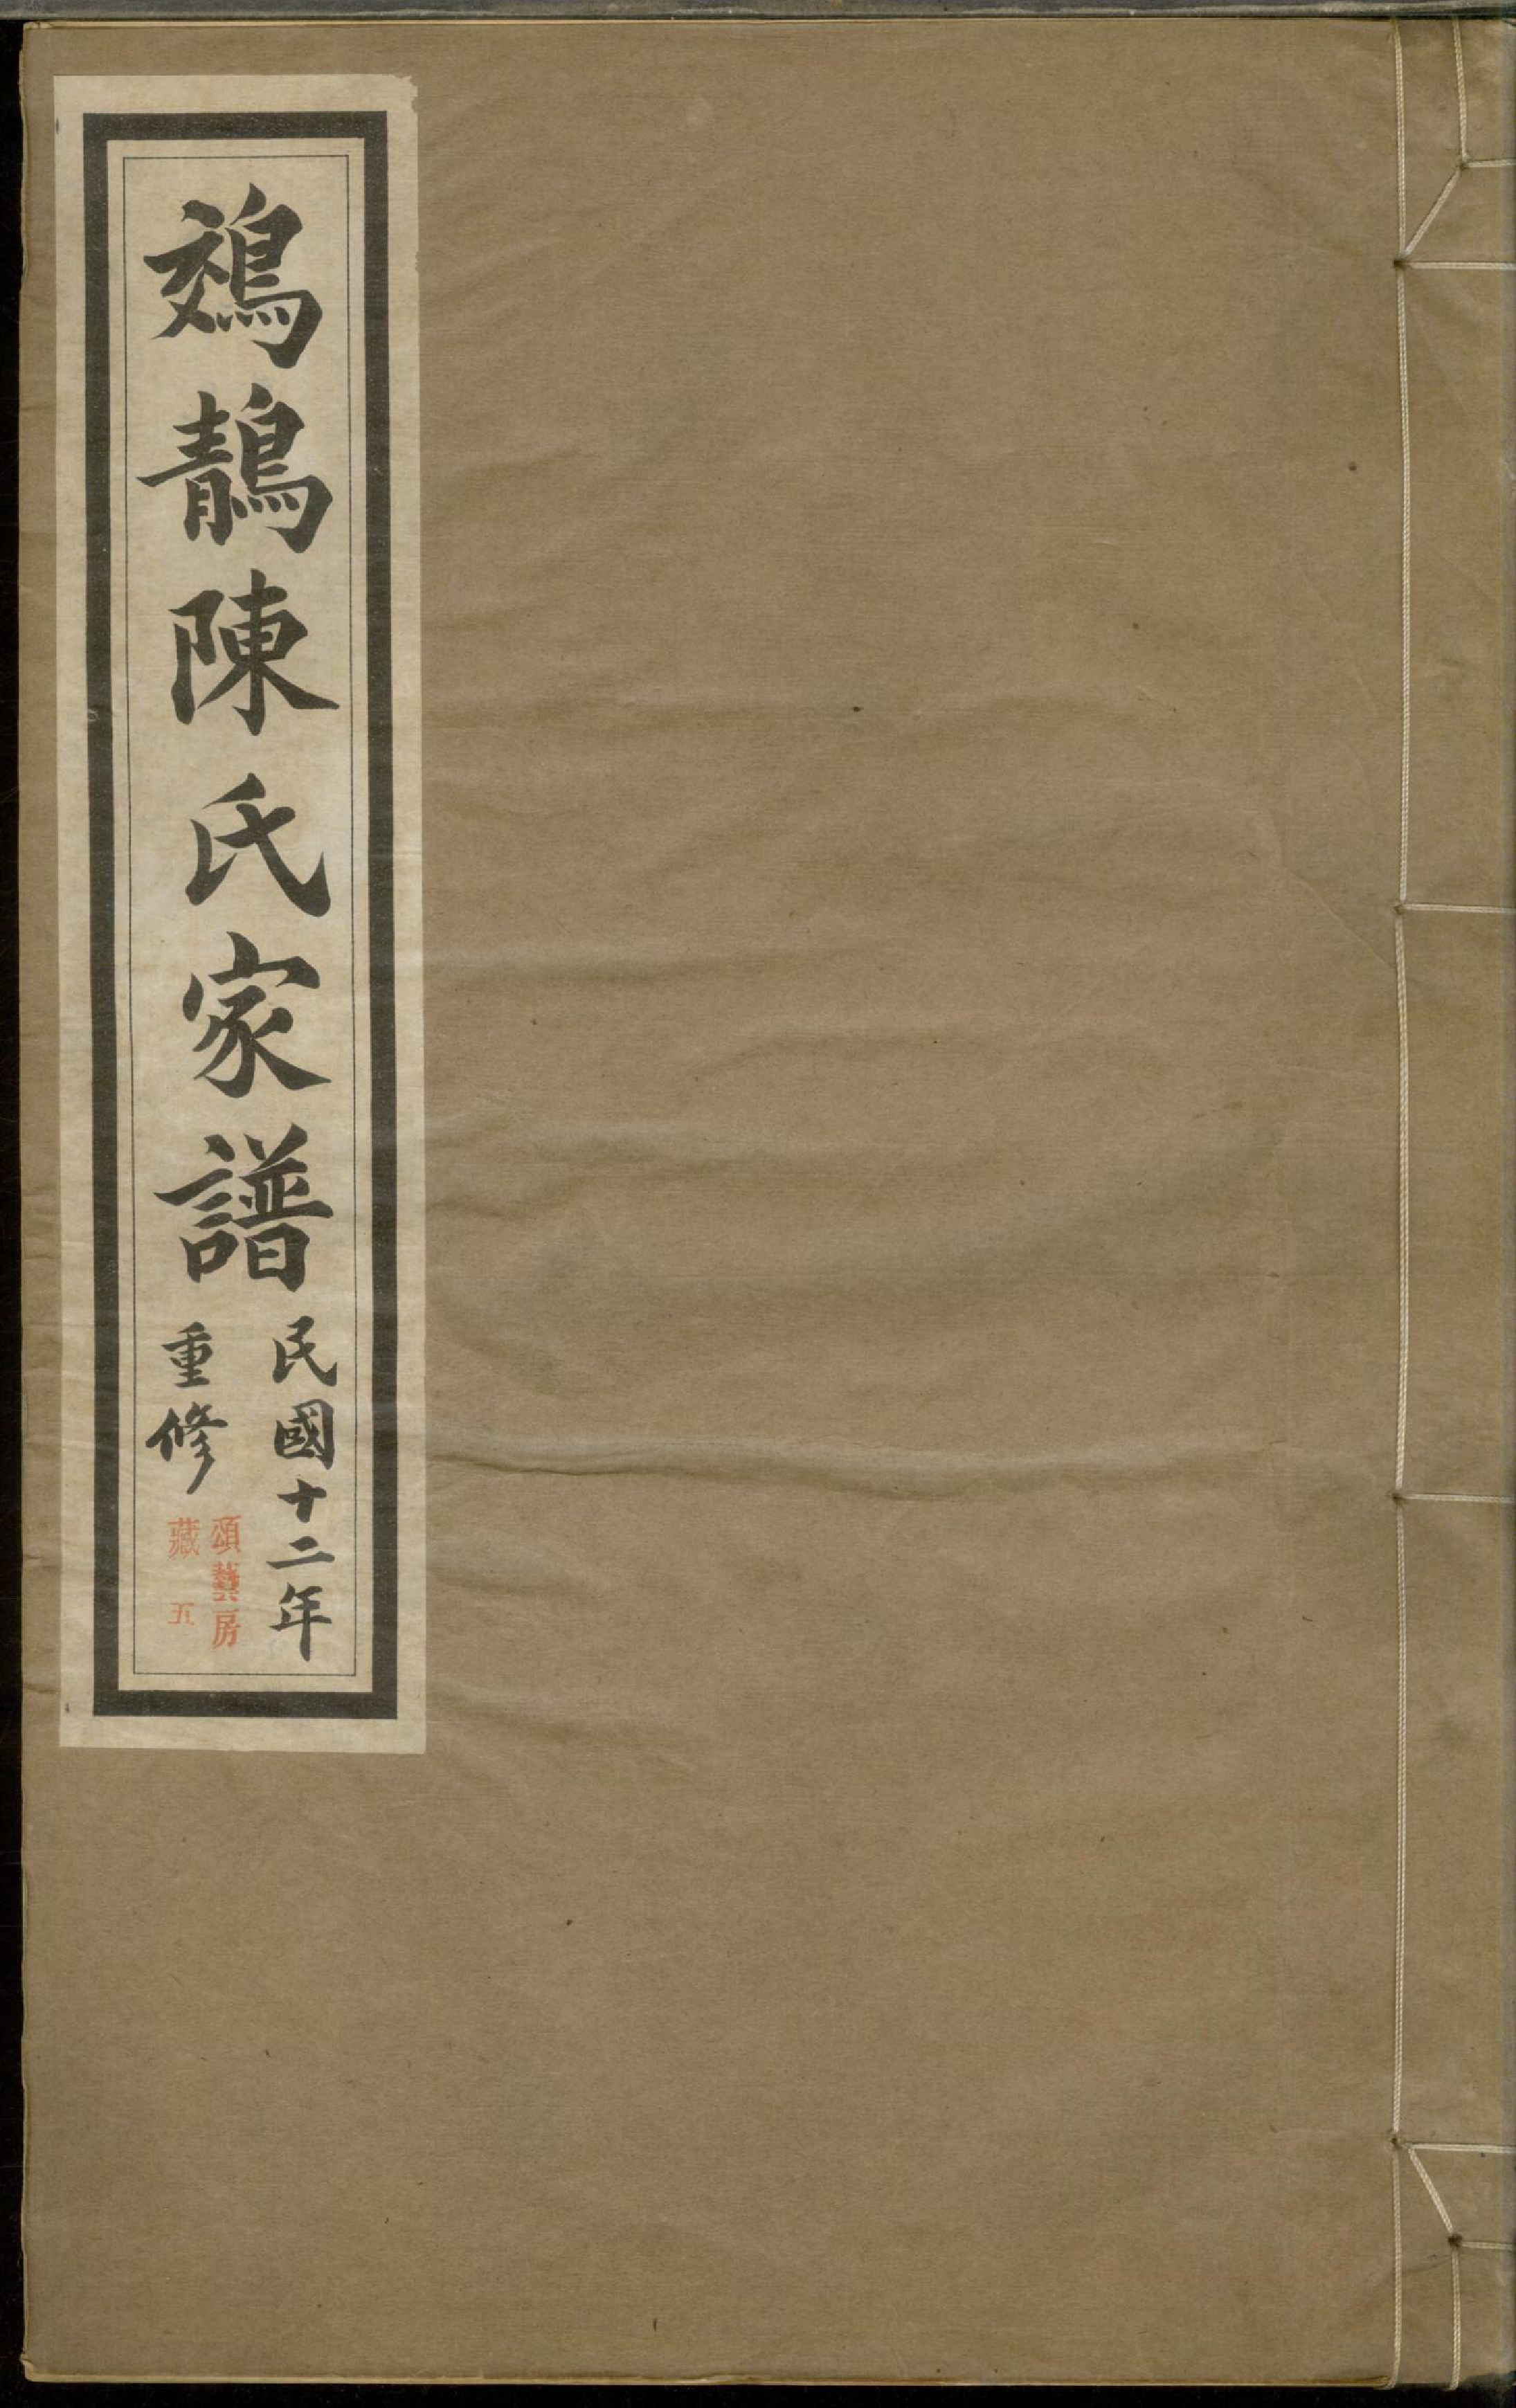 鵁鶄陳氏家譜
民國十二年
重修
頌藝房
藏 五